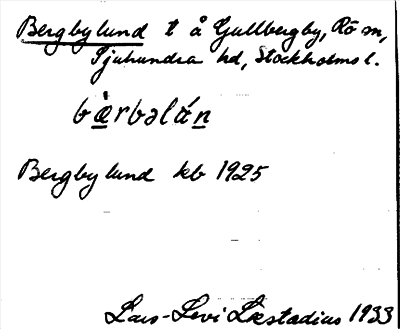 Bergbylund t å Gullbergby, Rö sn,
Sjuhundra hd, Stockholms l.
bæ̀rbəlán
Bergbylund kb 1925
Lars-Levi Læstadius 1933